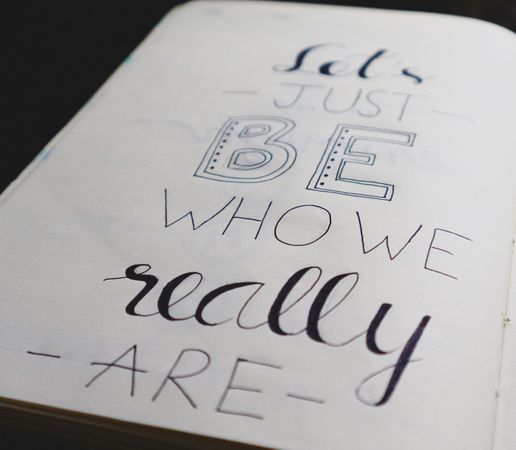 Let's
- JUST -
BE
WHO WE
really
- ARE -